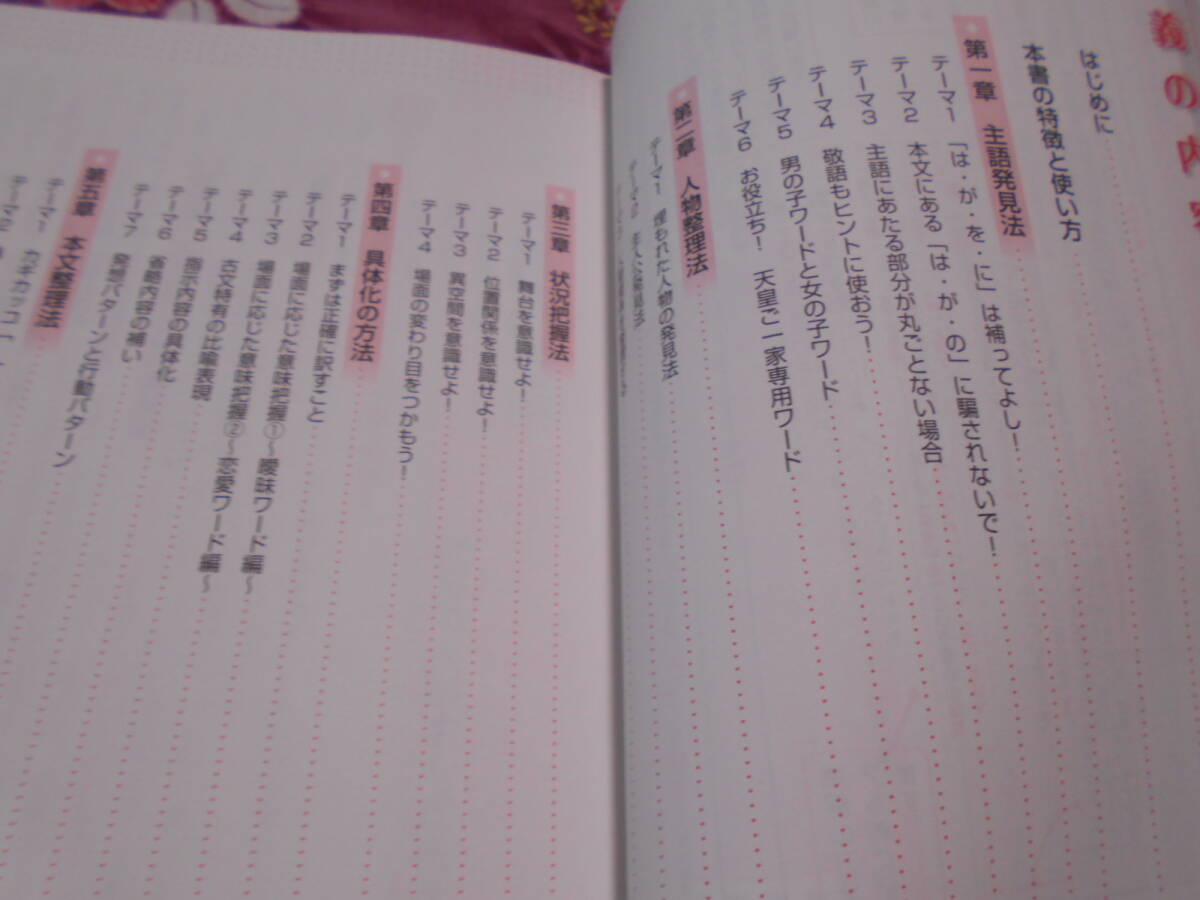 義の内容
はじめに
本書の特徴と使い方
第一章 主語発見法
テーマ1 「は・が・を・に」は補ってよし!
テーマ2 本文にある「は・が・の」に騙されないで!
テーマ3 主語にあたる部分が丸ごとない場合
テーマ4 敬語もヒントに使おう!
テーマ5 男の子ワードと女の子ワード
テーマ6 お役立ち! 天皇ご一家専用ワード
第二章 人物整理法
テーマ1 埋われた人物の発見法
テーマ2 主人公発見法
第三章 状況把握法
テーマ1 舞台を意識せよ!
テーマ2 位置関係を意識せよ!
テーマ3 異空間を意識せよ!
テーマ4 場面の変わり目をつかもう!
第四章 具体化の方法
テーマ1 まずは正確に訳すこと
テーマ2 場面に応じた意味把握①~曖昧ワード編~
テーマ3 場面に応じた意味把握②~恋愛ワード編~
テーマ4 古文特有の比喩表現
テーマ5 指示内容の具体化
テーマ6 省略内容の補い
テーマ7 発想パターンと行動パターン
第五章 本文整理法
テーマ1 カギカッコ「
テーマ2